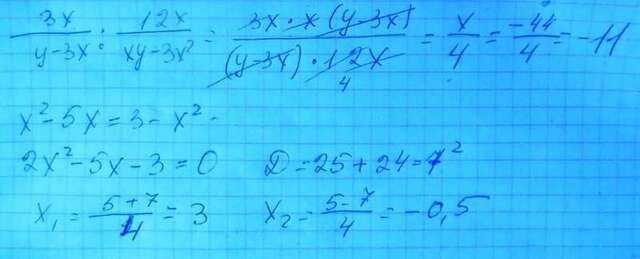 3x/(y-3x) : 12x/(xy-3x²) = 3x·x(y-3x)/((y-3x)·12x) = x/4 = -44/4 = -11
4
x²-5x=3-x²
2x²-5x-3=0 D=25+24=7²
x₁=(5+7)/4=3 x₂=(5-7)/4=-0,5